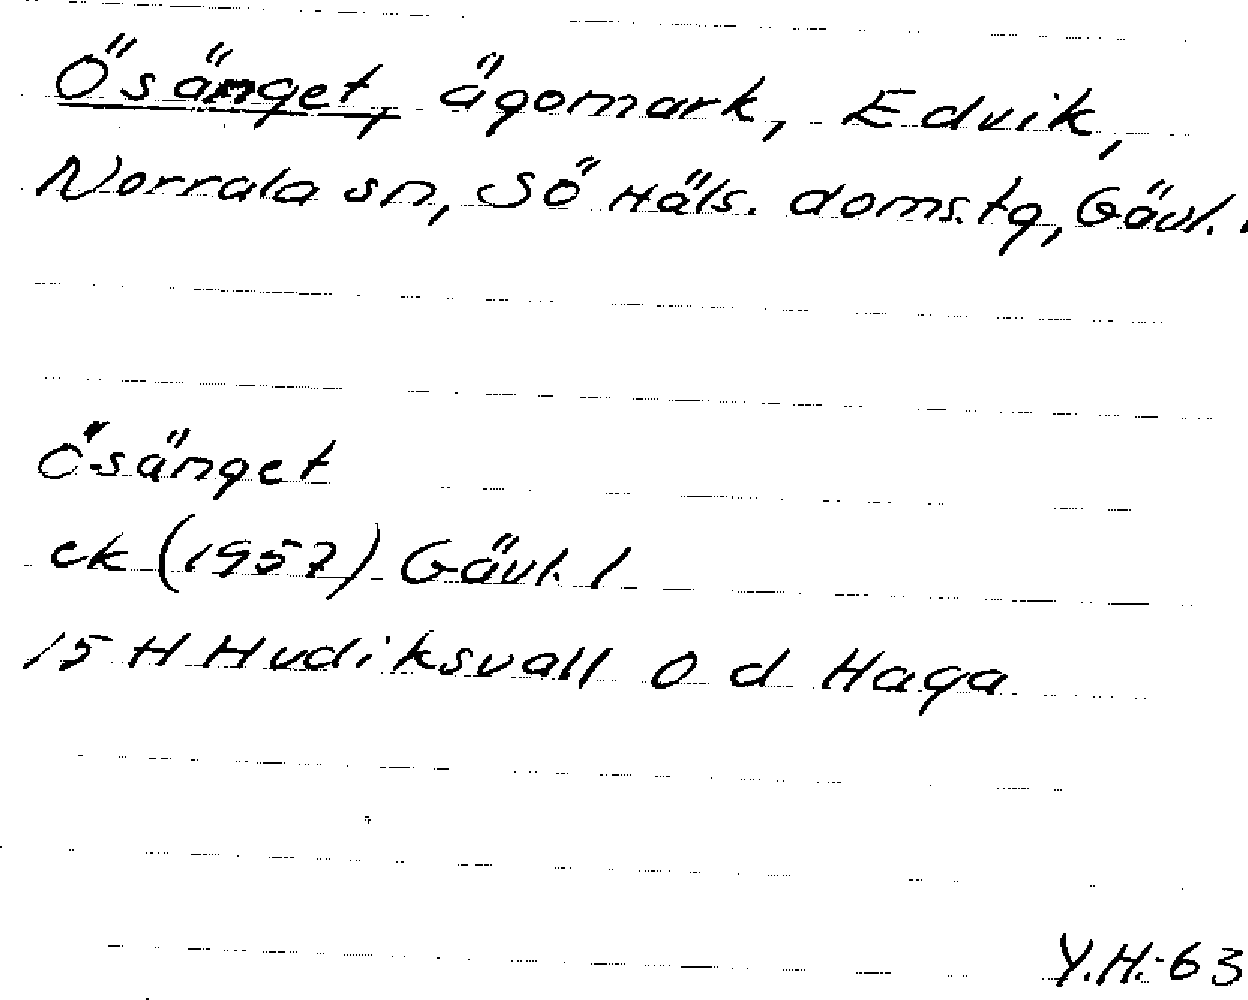 Ösänget, ägomark, Edvik,
Norrala sn, Sö Häls. doms.tg, Gävl.
Ösänget
ek (1957) Gävl. l
15 H Hudiksvall 0 d Haga
Y.H.-63